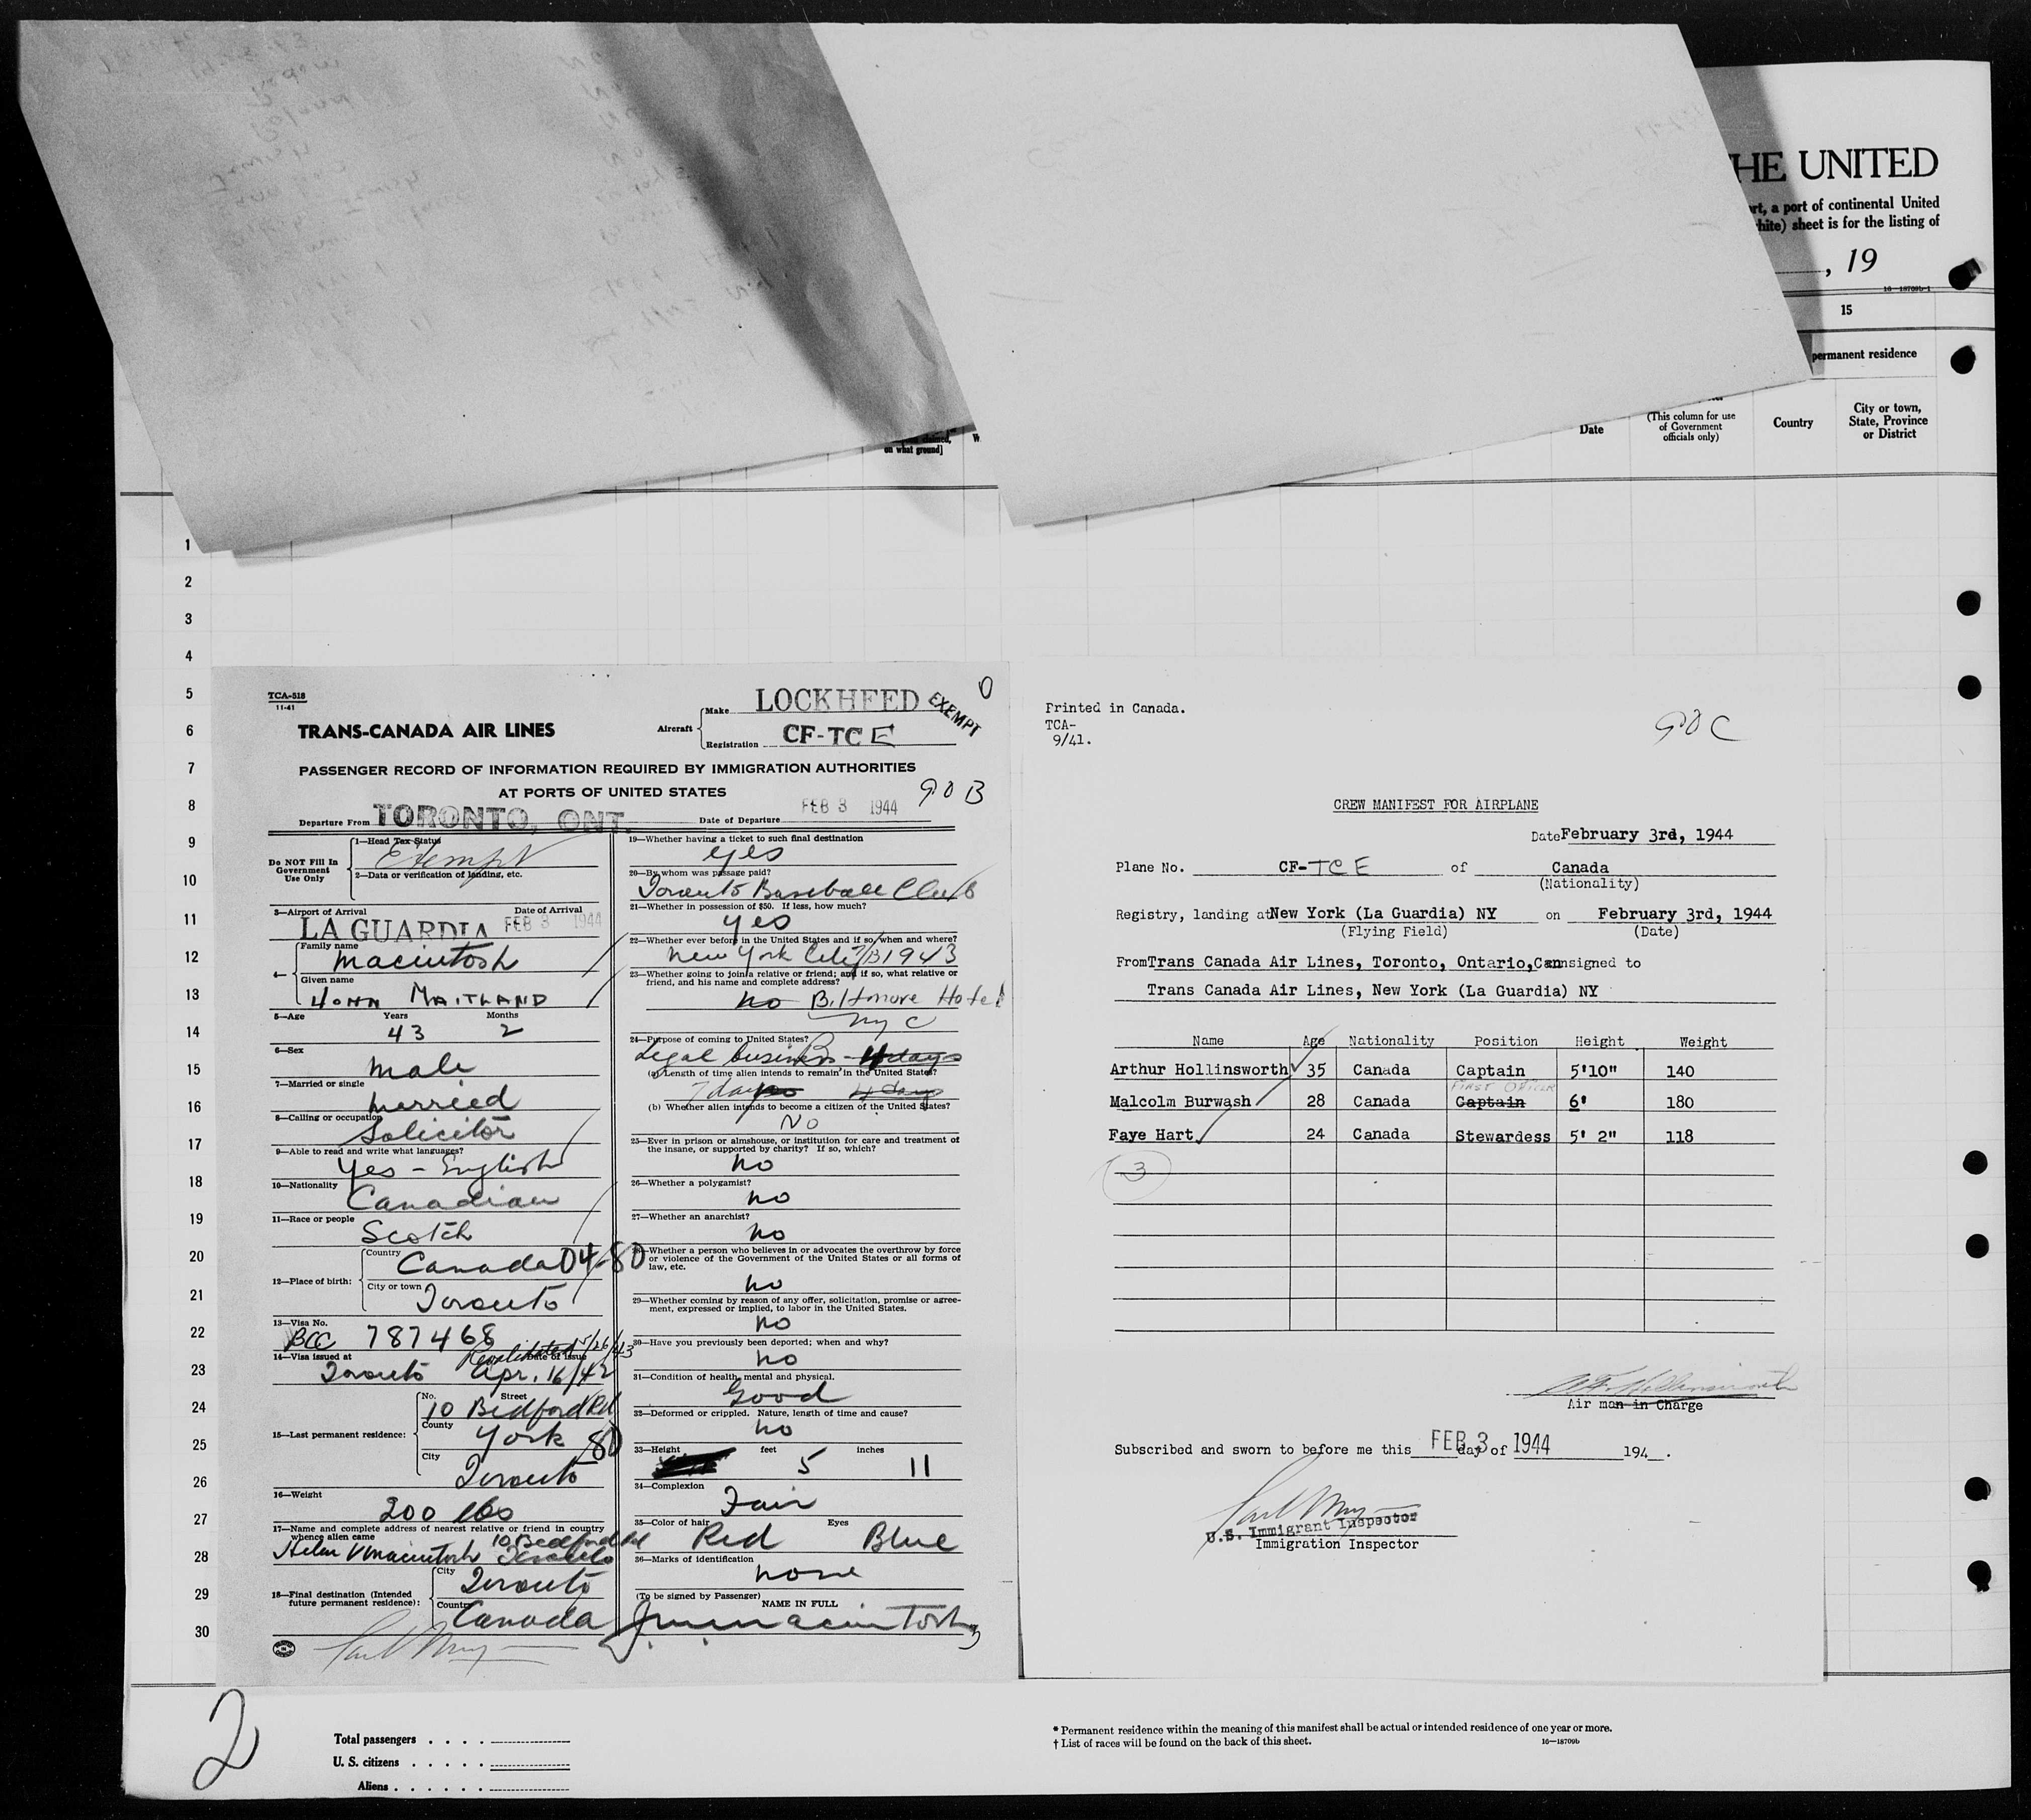 THE UNITED
rt, a port of continental United
hite) sheet is for the listing of
, 19
16—18709b-1
15
permanent residence
on what ground]
Date
(This column for use
of Government
officials only)
Country
City or town,
State, Province
or District
1
2
3
4
5
6
7
8
9
10
11
12
13
14
15
16
17
18
19
20
21
22
23
24
25
26
27
28
29
30
TCA-518
11-41
TRANS-CANADA AIR LINES
Aircraft
Make LOCKHEED
Registration CF-TCE
EXEMPT
0
PASSENGER RECORD OF INFORMATION REQUIRED BY IMMIGRATION AUTHORITIES
AT PORTS OF UNITED STATES
90B
Departure From TORONTO, ONT. Date of Departure FEB 3 1944
Do NOT Fill In
Government
Use Only
1—Head Tax Status
Exempt
2—Data or verification of landing, etc.
3—Airport of Arrival Date of Arrival
LA GUARDIA FEB 3 1944
4—
Family name
Macintosh
Given name
JOHN MAITLAND
5—Age Years Months
43 2
6—Sex
male
7—Married or single
Married
8—Calling or occupation
Solicitor
9—Able to read and write what languages?
Yes - English
10—Nationality
Canadian
11—Race or people
Scotch
12—Place of birth:
Country
Canada 04-80
City or town
Toronto
13—Visa No.
BCC 787468
Revalidated 5/26/43
14—Visa issued at Date of Issue
Toronto Apr. 16/42
15—Last permanent residence:
No. Street
10 Bedford Rd
County
York 80
City
Toronto
16—Weight
200 lbs
17—Name and complete address of nearest relative or friend in country
whence alien came
10 Bedford Rd
Helen V Macintosh Toronto
18—Final destination (Intended
future permanent residence):
City
Toronto
Country
Canada
19—Whether having a ticket to such final destination
yes
20—By whom was passage paid?
Toronto Baseball Club
21—Whether in possession of $50. If less, how much?
yes
22—Whether ever before in the United States and if so, when and where?
New York City 1943
23—Whether going to join a relative or friend; and if so, what relative or
friend, and his name and complete address?
no Biltmore Hotel
NYC
24—Purpose of coming to United States?
Legal business - 4 days
(a) Length of time alien intends to remain in the United States?
7 days 4 days
(b) Whether alien intends to become a citizen of the United States?
No
25—Ever in prison or almshouse, or institution for care and treatment of
the insane, or supported by charity? If so, which?
no
26—Whether a polygamist?
no
27—Whether an anarchist?
no
28—Whether a person who believes in or advocates the overthrow by force
or violence of the Government of the United States or all forms of
law, etc.
no
29—Whether coming by reason of any offer, solicitation, promise or agree-
ment, expressed or implied, to labor in the United States.
no
30—Have you previously been deported; when and why?
no
31—Condition of health, mental and physical.
Good
32—Deformed or crippled. Nature, length of time and cause?
no
33—Height feet inches
5 11
34—Complexion
Fair
35—Color of hair Eyes
Red Blue
36—Marks of identification
none
(To be signed by Passenger)
NAME IN FULL
J. M. Macintosh
Printed in Canada.
TCA-
9/41.
90C
CREW MANIFEST FOR AIRPLANE
Date February 3rd, 1944
Plane No. CF-TCE of Canada
(Nationality)
Registry, landing at New York (La Guardia) NY on February 3rd, 1944
(Flying Field) (Date)
From Trans Canada Air Lines, Toronto, Ontario, Can consigned to
Trans Canada Air Lines, New York (La Guardia) NY
Name Age Nationality Position Height Weight
Arthur Hollinsworth 35 Canada Captain 5'10" 140
FIRST OFFICER
Malcolm Burwash 28 Canada Captain 6' 180
Faye Hart 24 Canada Stewardess 5' 2" 118
3
Air man in Charge
Subscribed and sworn to before me this FEB 3 day of 1944 194 .
U.S. Immigrant Inspector
Immigration Inspector
2
Total passengers . . . .
U. S. citizens . . . . .
Aliens . . . . . .
* Permanent residence within the meaning of this manifest shall be actual or intended residence of one year or more.
† List of races will be found on the back of this sheet. 16—18709b